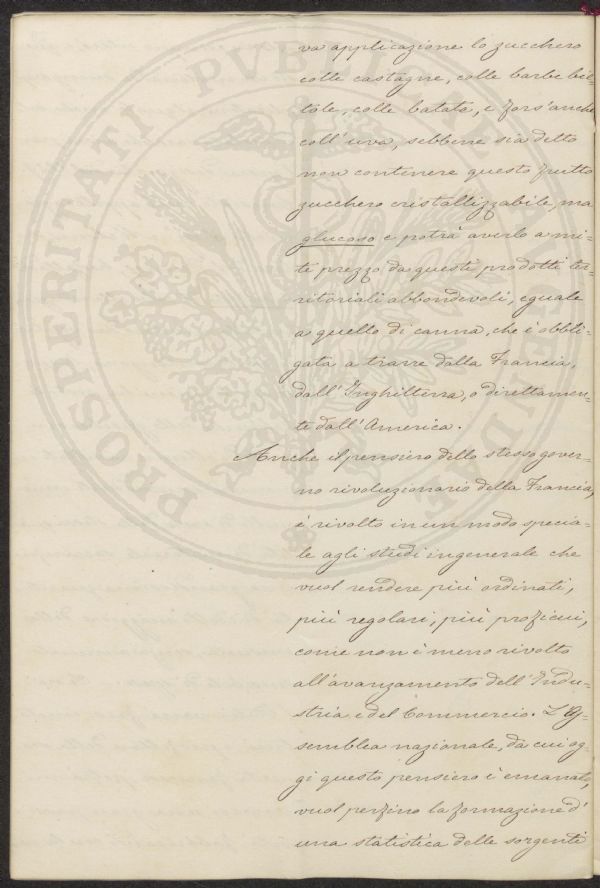 va applicazione lo zucchero
colle castagne, colle barbe bie-
tole, colle batate, e fors'anche
coll'uva, sebbene sia detto
non contenere questo frutto
zucchero cristallizzabile, ma
glucoso e potrà averlo a mi-
te prezzo da questi prodotti ter-
ritoriali abbondevoli, eguale
a quello di canna, che è obbli-
gata a trarre dalla Francia,
dall'Inghilterra, o direttamen-
te dall'America.
Anche il pensiero dello stesso gover-
no rivoluzionario della Francia,
è rivolto in un modo specia-
le agli studi in generale che
vuol rendere più ordinati,
più regolari, più proficui,
come non è meno rivolto
all'avanzamento dell'Indu-
stria e del Commercio. L'As-
semblea nazionale, da cui og-
gi questo pensiero è emanato,
vuol perfino la formazione d'
una statistica delle sorgenti
PROSPERITATI PUBLICAE